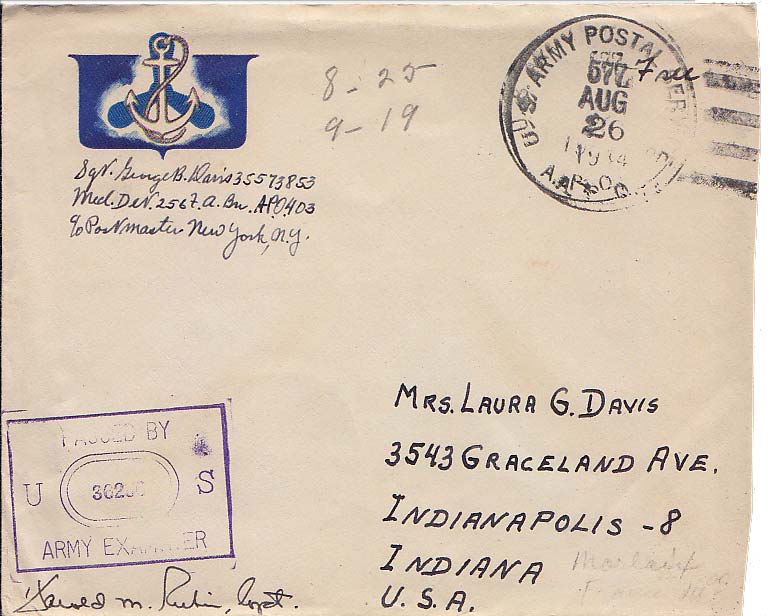 8-25
9-19
U.S. ARMY POSTAL SERVICE
Free
AUG
26
A.P.O.
Sgt. George B. Davis 35573853
Med. Det. 256 F.A. Bn. APO 403
c/o Postmaster New York, N.Y.
MRS. LAURA G. DAVIS
3543 GRACELAND AVE.
INDIANAPOLIS -8
INDIANA
U.S.A.
PASSED BY
U S
ARMY EXAMINER
Harold M. Rubin, Capt.
France